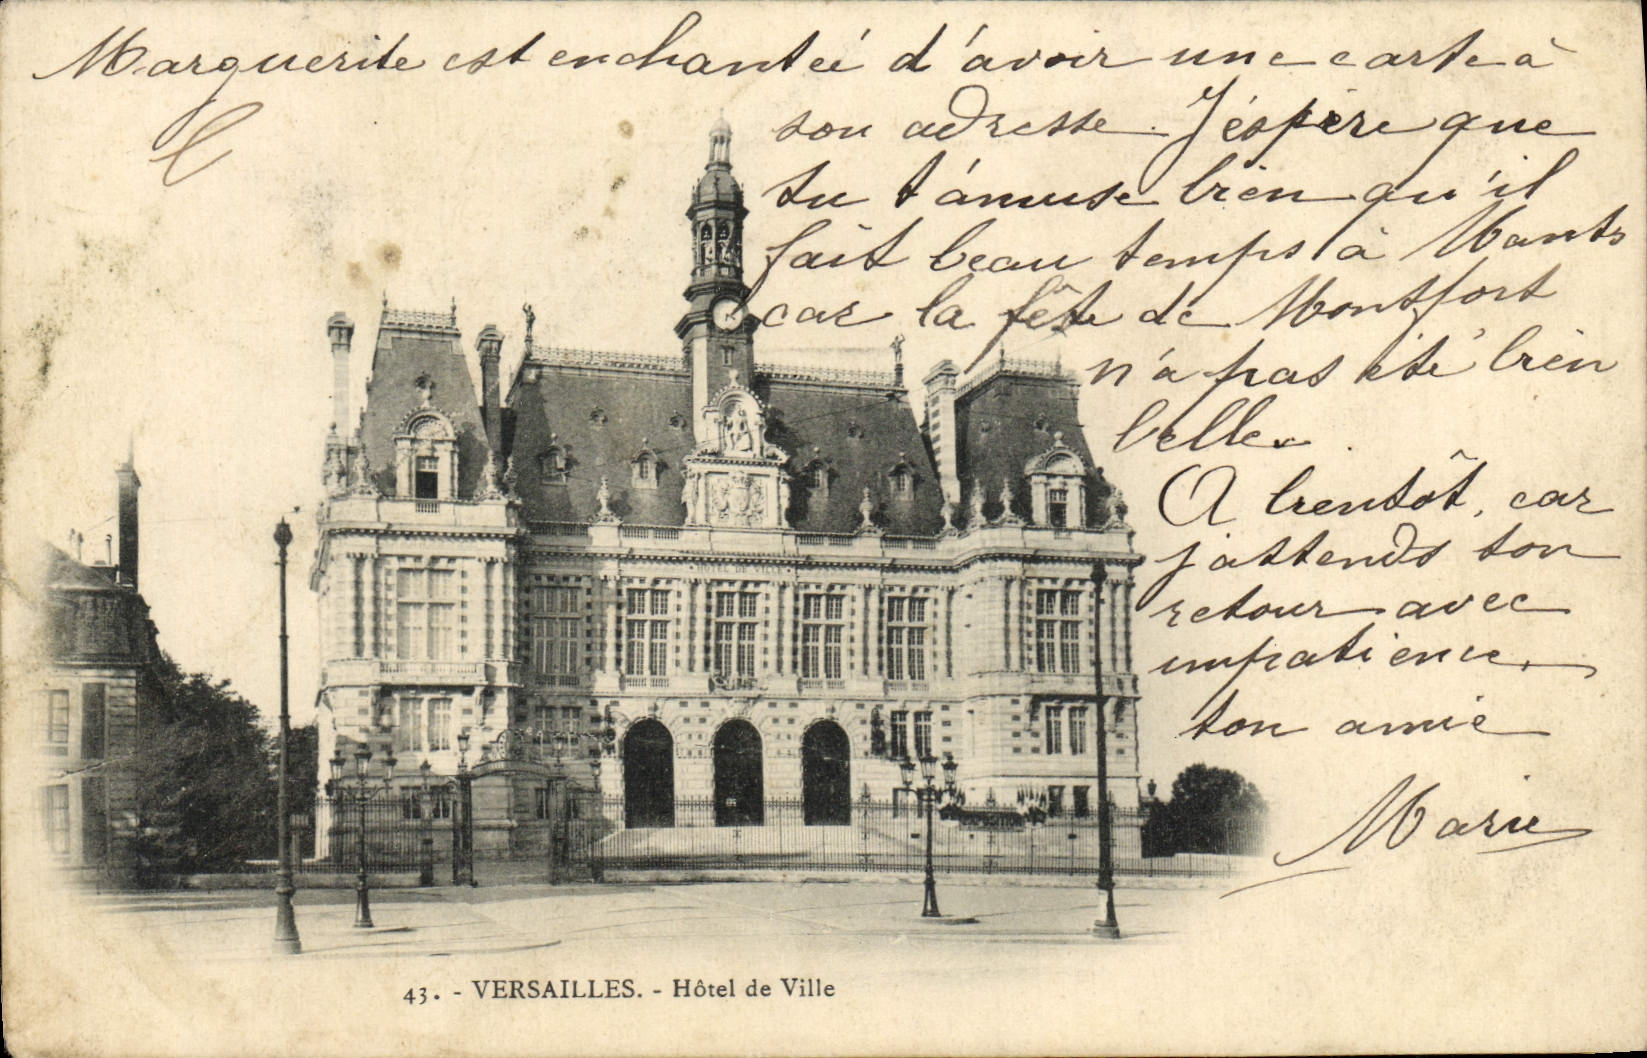 Marguerite est enchantée d'avoir une carte à
son adresse. J'éspère que
tu t'amuse bien qu'il
fait beau temps à Mants
car la fête de Montfort
n'a pas été bien
belle.
A bientôt, car
j'attends ton
retour avec
impatience.
ton amie
Marie
HOTEL DE VILLE
43. - VERSAILLES. - Hôtel de Ville